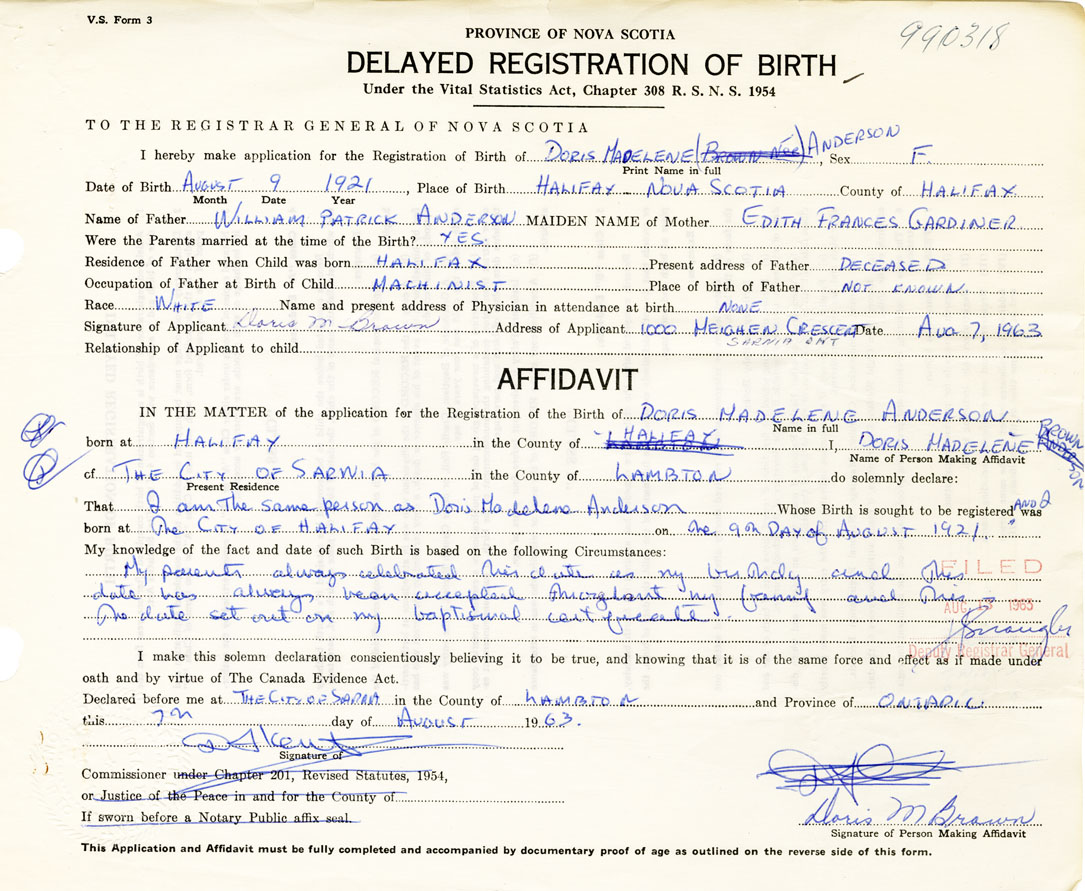 V.S. Form 3
990318
PROVINCE OF NOVA SCOTIA
DELAYED REGISTRATION OF BIRTH
Under the Vital Statistics Act, Chapter 308 R. S. N. S. 1954
TO THE REGISTRAR GENERAL OF NOVA SCOTIA
I hereby make application for the Registration of Birth of DORIS MADELENE (BROWN NEE) ANDERSON, Sex F.
Print Name in full
Date of Birth AUGUST 9 1921, Place of Birth HALIFAX NOVA SCOTIA County of HALIFAX
Month Date Year
Name of Father WILLIAM PATRICK ANDERSON MAIDEN NAME of Mother EDITH FRANCES GARDINER
Were the Parents married at the time of the Birth? YES.
Residence of Father when Child was born HALIFAX Present address of Father DECEASED
Occupation of Father at Birth of Child MACHINIST Place of birth of Father NOT KNOWN.
Race WHITE Name and present address of Physician in attendance at birth NONE
Signature of Applicant Doris M Brown Address of Applicant 1000 MEIGHEN CRESCENT Date AUG 7, 1963
SARNIA ONT
Relationship of Applicant to child
AFFIDAVIT
IN THE MATTER of the application for the Registration of the Birth of DORIS MADELENE ANDERSON
Name in full
born at HALIFAX in the County of LAMBTON HALIFAX I, DORIS MADELENE ANDERSON BROWN
Name of Person Making Affidavit
of THE CITY OF SARNIA in the County of LAMBTON do solemnly declare:
Present Residence
That I am the same person as Doris Madelene Anderson Whose Birth is sought to be registered AND I was
born at The CITY OF HALIFAX on the 9th DAY of AUGUST 1921.
My knowledge of the fact and date of such Birth is based on the following Circumstances:
My parents always celebrated this date as my birthday and this
date has always been accepted throughout my family and this is
the date set out on my baptismal certificate.
FILED
AUG 13 1963
Deputy Registrar General
I make this solemn declaration conscientiously believing it to be true, and knowing that it is of the same force and effect as if made under
oath and by virtue of The Canada Evidence Act.
Declared before me at THE CITY OF SARNIA in the County of LAMBTON and Province of ONTARIO.
this 7th day of AUGUST 1963.
Signature of
Commissioner under Chapter 201, Revised Statutes, 1954,
or Justice of the Peace in and for the County of
If sworn before a Notary Public affix seal.
Doris M Brown
Signature of Person Making Affidavit
This Application and Affidavit must be fully completed and accompanied by documentary proof of age as outlined on the reverse side of this form.